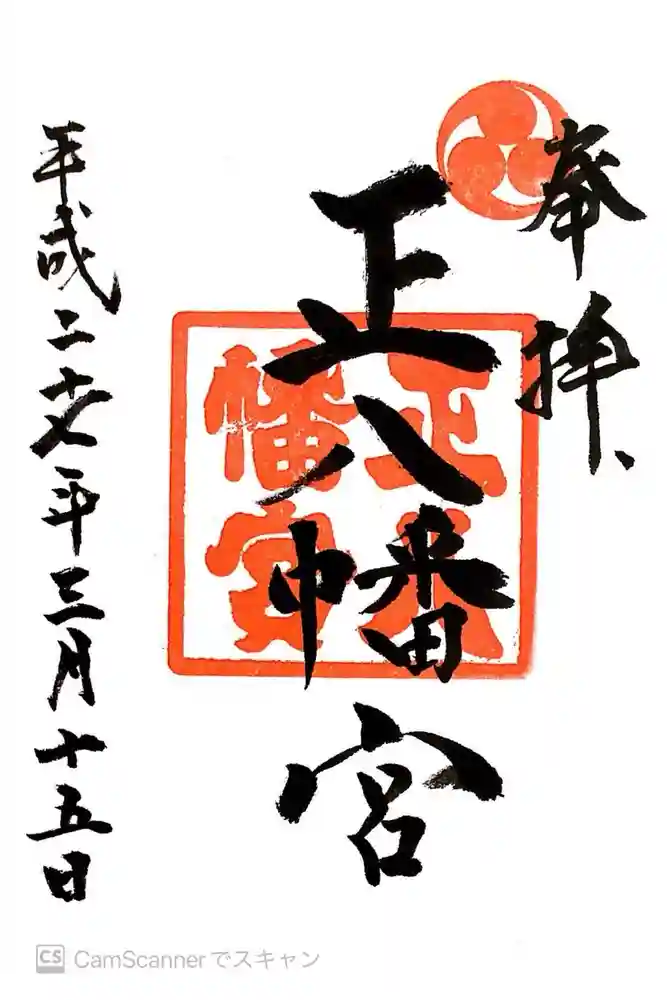 奉拝、
正八幡宮
正八
幡宮
平成二十七年三月十五日
CS CamScannerでスキャン